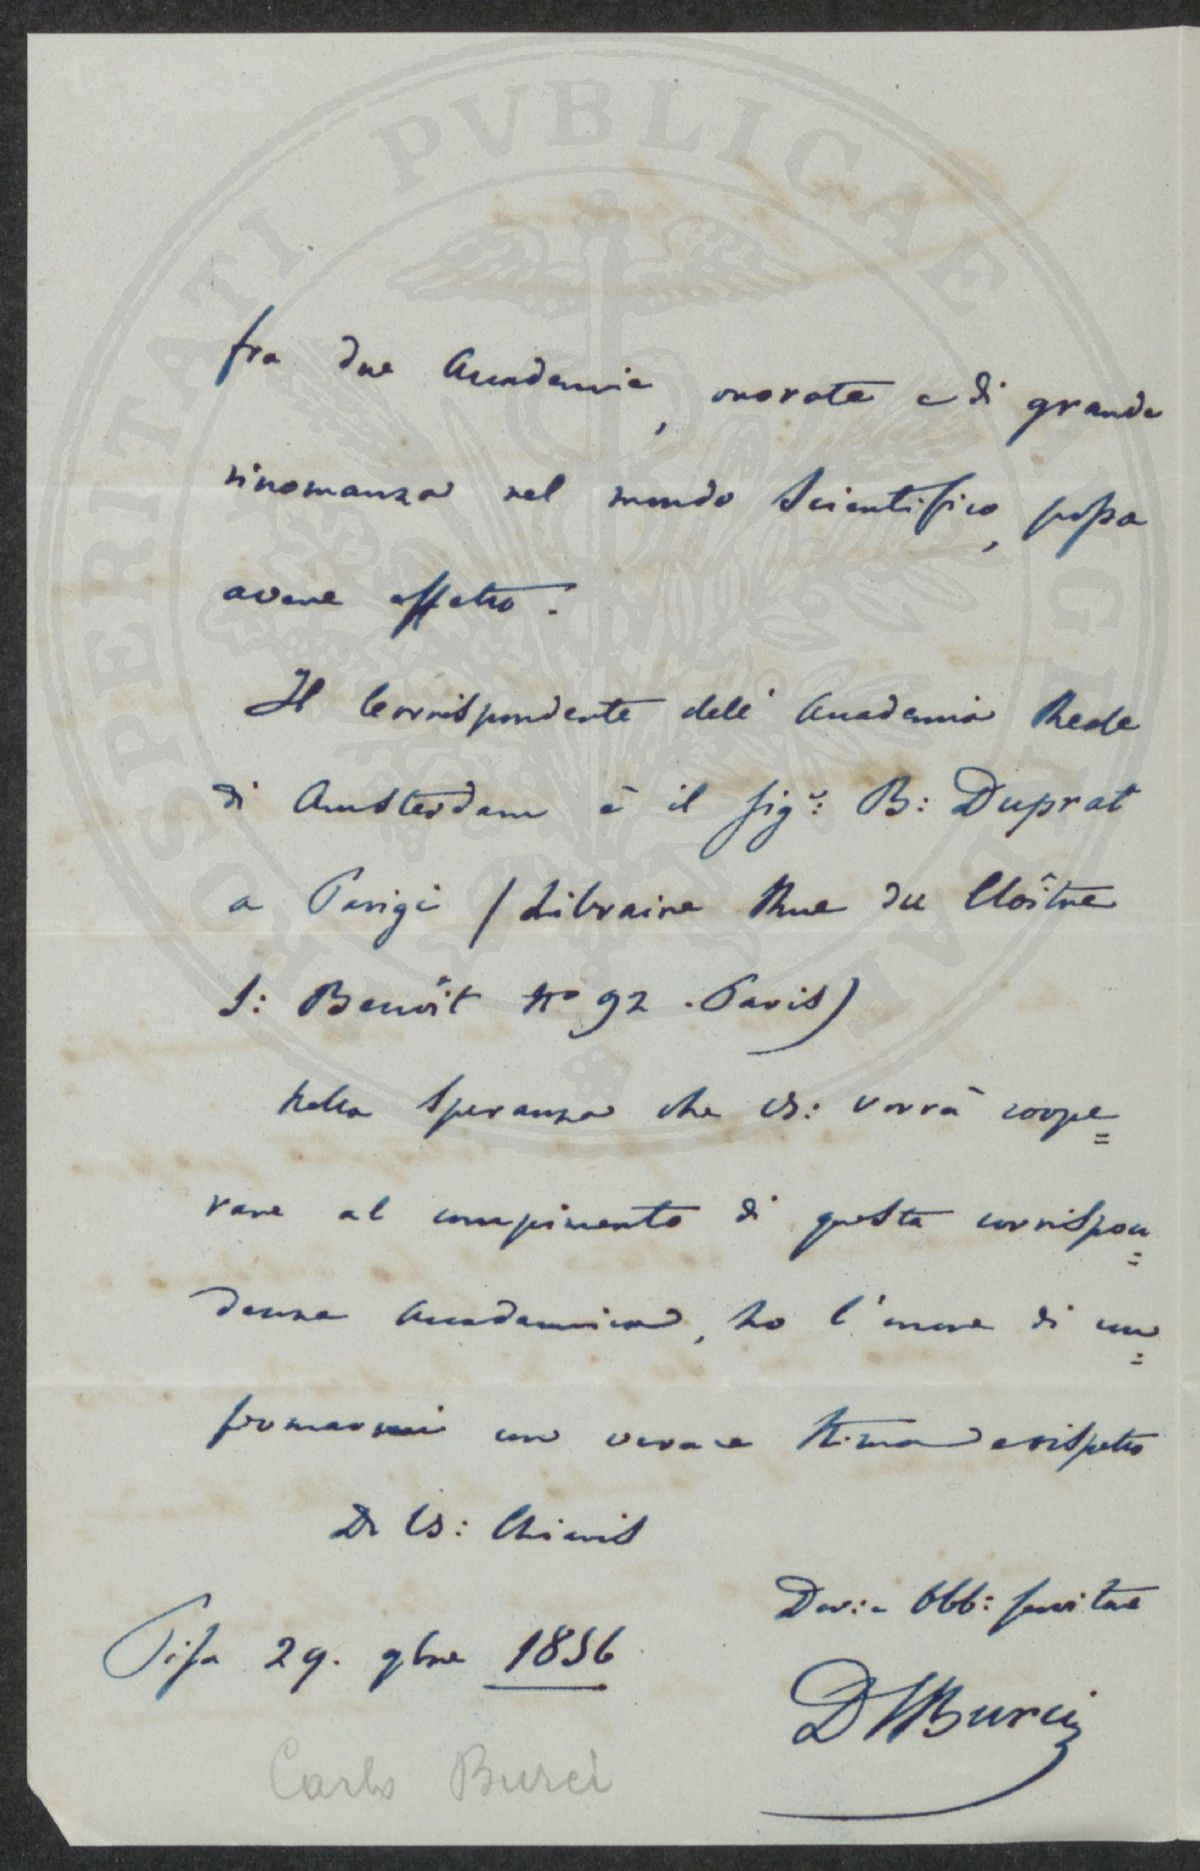 fra due Accademie, onorate e di grande
rinomanza nel mondo Scientifico, possa
avere effetto.
Il Corrispondente dell' Accademia Reale
di Amsterdam è il Sigr: B: Duprat
a Parigi (Libraire Rue du Cloître
S: Benoît No 92. Paris)
Nella Speranza che VS: vorrà coope=
rare al compimento di questa corrispon=
denza Accademica, ho l'onore di con=
fermarmi con verace Stima e rispetto
Di VS: Chiaris
Dev: Obb: servitore
Pisa 29. 9bre 1856
Burci
Carlo Burci
PROSPERITATI PVBLICAE AVGENDAE